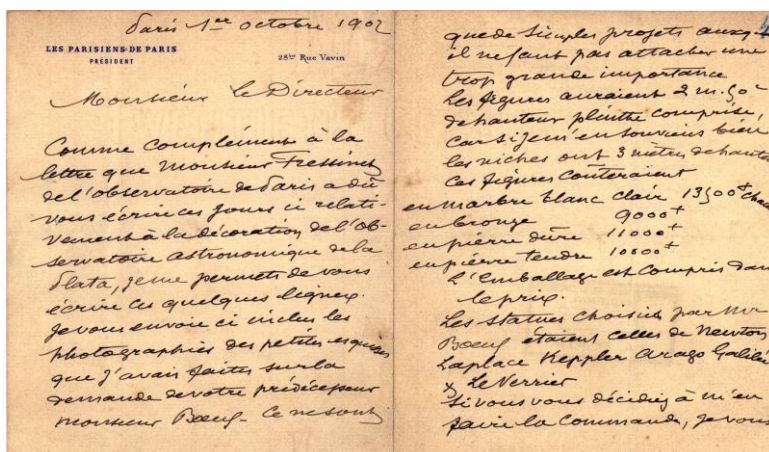 Paris 1er octobre 1902
LES PARISIENS DE PARIS
PRÉSIDENT
28bis Rue Vavin
Monsieur le Directeur
Comme complément à la
lettre que Monsieur Fressinet
de l'observatoire de Paris a dû
vous écrire ces jours ci relati-
vement à la décoration de l'ob-
servatoire astronomique de la
Plata, je me permets de vous
écrire ces quelques lignes.
Je vous envoie ci inclus les
photographies des petites esquisses
que j'avais faites sur la
demande de votre prédécesseur
Monsieur Boeuf. Ce ne sont
que de simples projets auxq
il ne faut pas attacher une
trop grande importance
Les figures auraient 2 m. 50
de hauteur plinthe comprise,
car si je m'en souviens bien
les niches ont 3 mètres de haute
Ces figures coûteraient
en marbre blanc clair 13500 f chac
en bronze 9000 f
en pierre dure 11000 f
en pierre tendre 10800 f
L'emballage est compris dan
le prix.
Les statues choisies par Mr
Boeuf étaient celles de Newton
Laplace Keppler Arago Galilé
& Le Verrier
Si vous vous décidiez à m'en
faire la commande, je vous